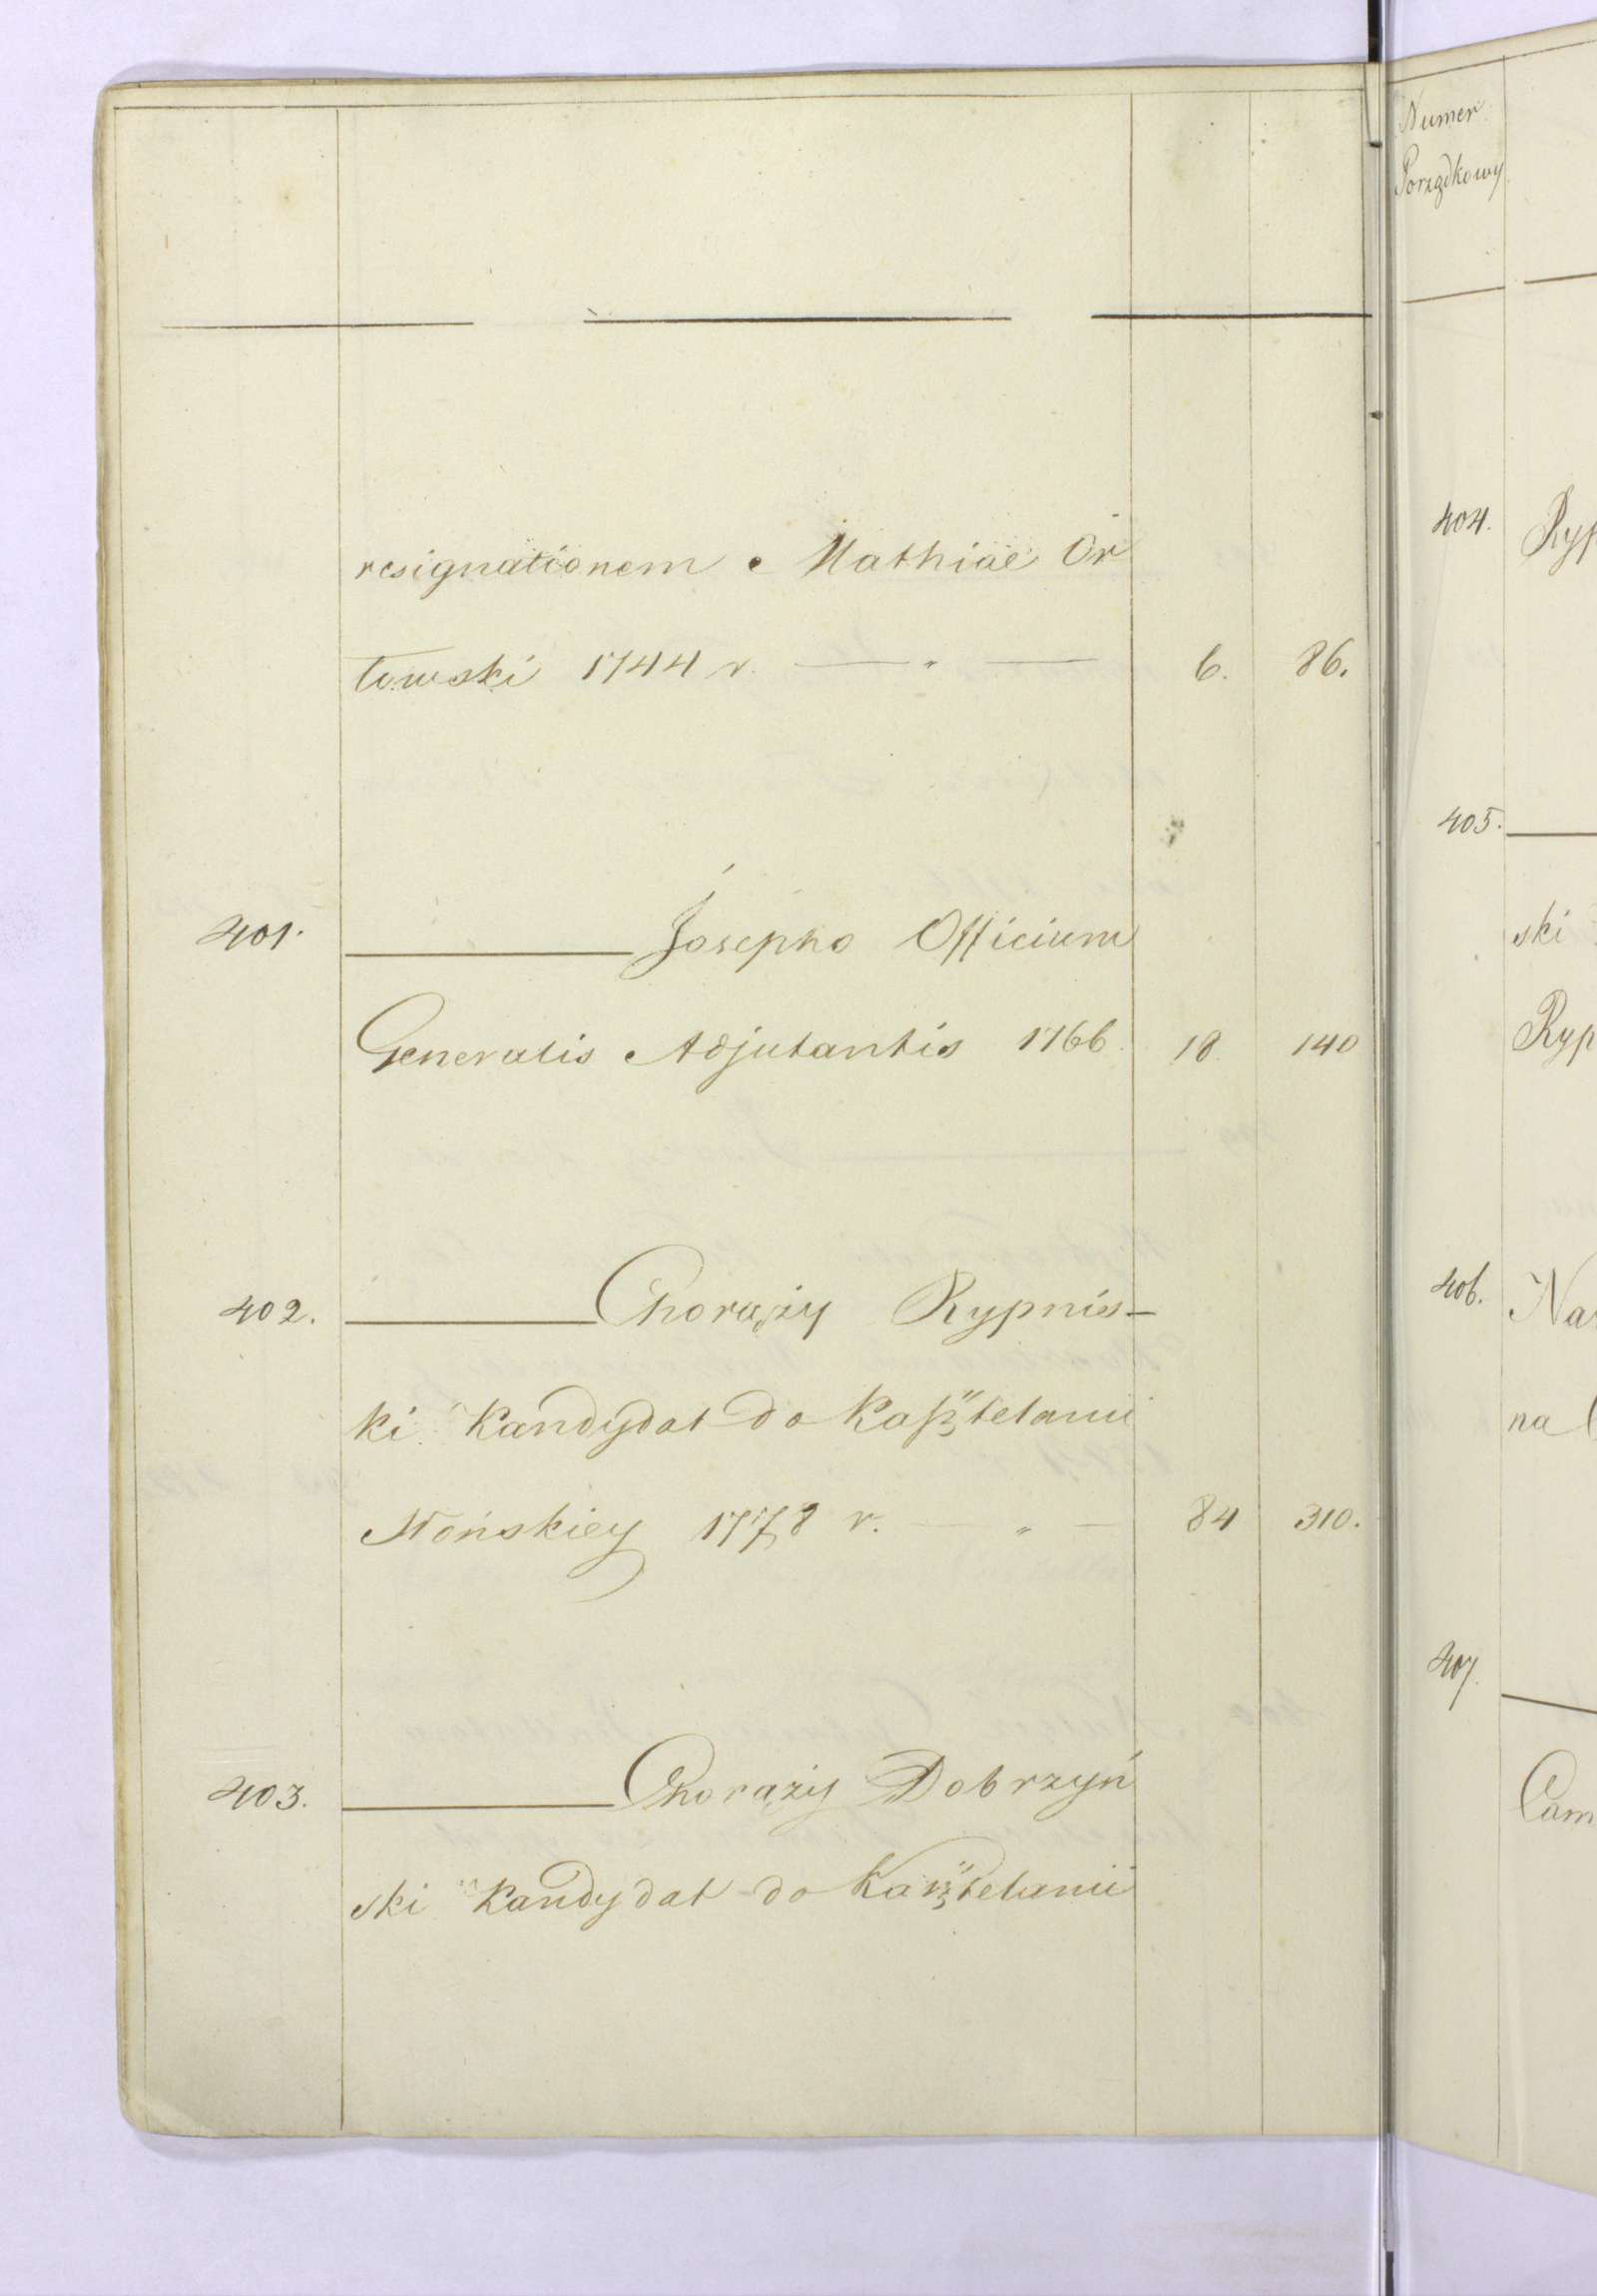 resignationem Mathiae Or
łowski 1744 r. — " — 6. 86.
401. ——— Josepho Officium
Generalis Adjutantis 1766. 18. 140
402. ——— Chorąży Rypnis-
ki Kandydat do Kasztelanii
Słońskiey 1778 r. — " — 84 310.
403. ——— Chorąży Dobrzyń
ski Kandydat do Kasztelanii
Numer
Porządkowy
404. Ryp
405. ———
ski
Ryp
406. Na
na
407. ———
Cam